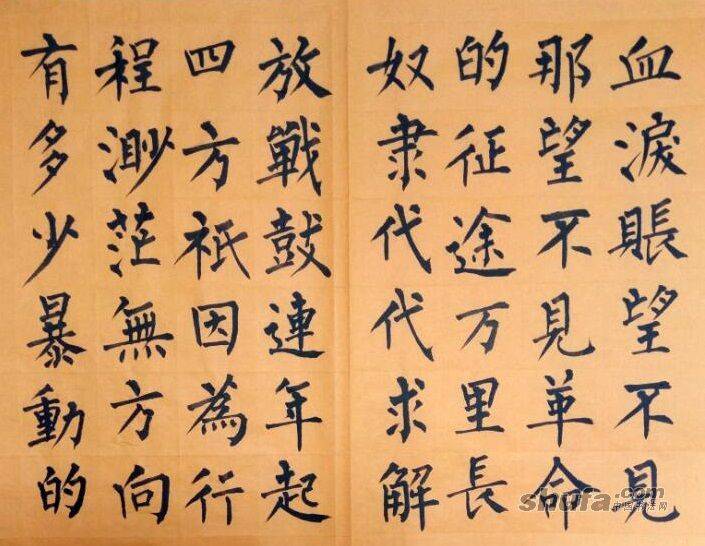 血淚賬望不見
那望不見革命
的征途万里長
奴隶代代求解
放戰鼓連年起
四方祇因為行
程渺茫無方向
有多少暴動的
shufa.com
中国书法网